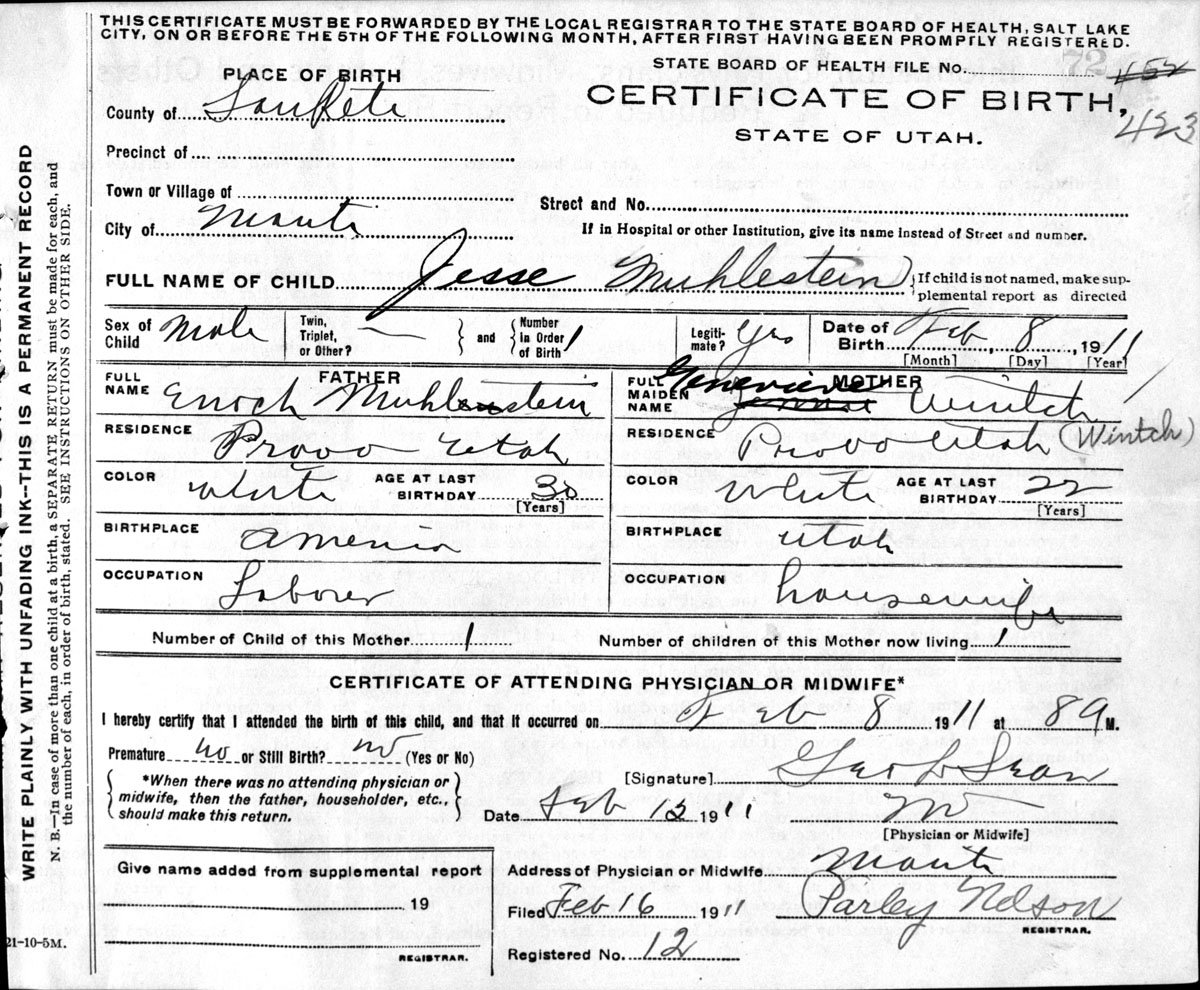 THIS CERTIFICATE MUST BE FORWARDED BY THE LOCAL REGISTRAR TO THE STATE BOARD OF HEALTH, SALT LAKE
CITY, ON OR BEFORE THE 5TH OF THE FOLLOWING MONTH, AFTER FIRST HAVING BEEN PROMPTLY REGISTERED.
PLACE OF BIRTH
STATE BOARD OF HEALTH FILE No. 72 452
County of SanPete
CERTIFICATE OF BIRTH,
423
STATE OF UTAH.
Precinct of
Town or Village of
Street and No.
City of Manti
If in Hospital or other Institution, give its name instead of Street and number.
FULL NAME OF CHILD Jesse Muhlestein
If child is not named, make sup-
plemental report as directed
Sex of Child Male
Twin, Triplet, or Other? —
and
Number In Order of Birth 1
Legiti-mate? Yes
Date of Birth Feb, 8, 1911
[Month] [Day] [Year]
FATHER
FULL NAME Enoch Muhlestein
MOTHER
FULL MAIDEN NAME Genevieve Wintch
RESIDENCE Provo Utah
RESIDENCE Provo Utah (Wintch)
COLOR White AGE AT LAST BIRTHDAY 30
[Years]
COLOR White AGE AT LAST BIRTHDAY 22
[Years]
BIRTHPLACE America
BIRTHPLACE Utah
OCCUPATION Laborer
OCCUPATION housewife
Number of Child of this Mother 1
Number of children of this Mother now living 1
CERTIFICATE OF ATTENDING PHYSICIAN OR MIDWIFE*
I hereby certify that I attended the birth of this child, and that it occurred on Feb 8 1911 at 8 a M.
Premature no or Still Birth? no (Yes or No)
*When there was no attending physician or
midwife, then the father, householder, etc.,
should make this return.
[Signature] Geo L Sean
Date Feb 12 1911
MD
[Physician or Midwife]
Give name added from supplemental report
19
REGISTRAR.
Address of Physician or Midwife Manti
Filed Feb 16 1911 Parley Nelson
REGISTRAR.
Registered No. 12
WRITE PLAINLY WITH UNFADING INK--THIS IS A PERMANENT RECORD
N. B.—In case of more than one child at a birth, a SEPARATE RETURN must be made for each, and
the number of each, in order of birth, stated. SEE INSTRUCTIONS ON OTHER SIDE.
21-10-5M.